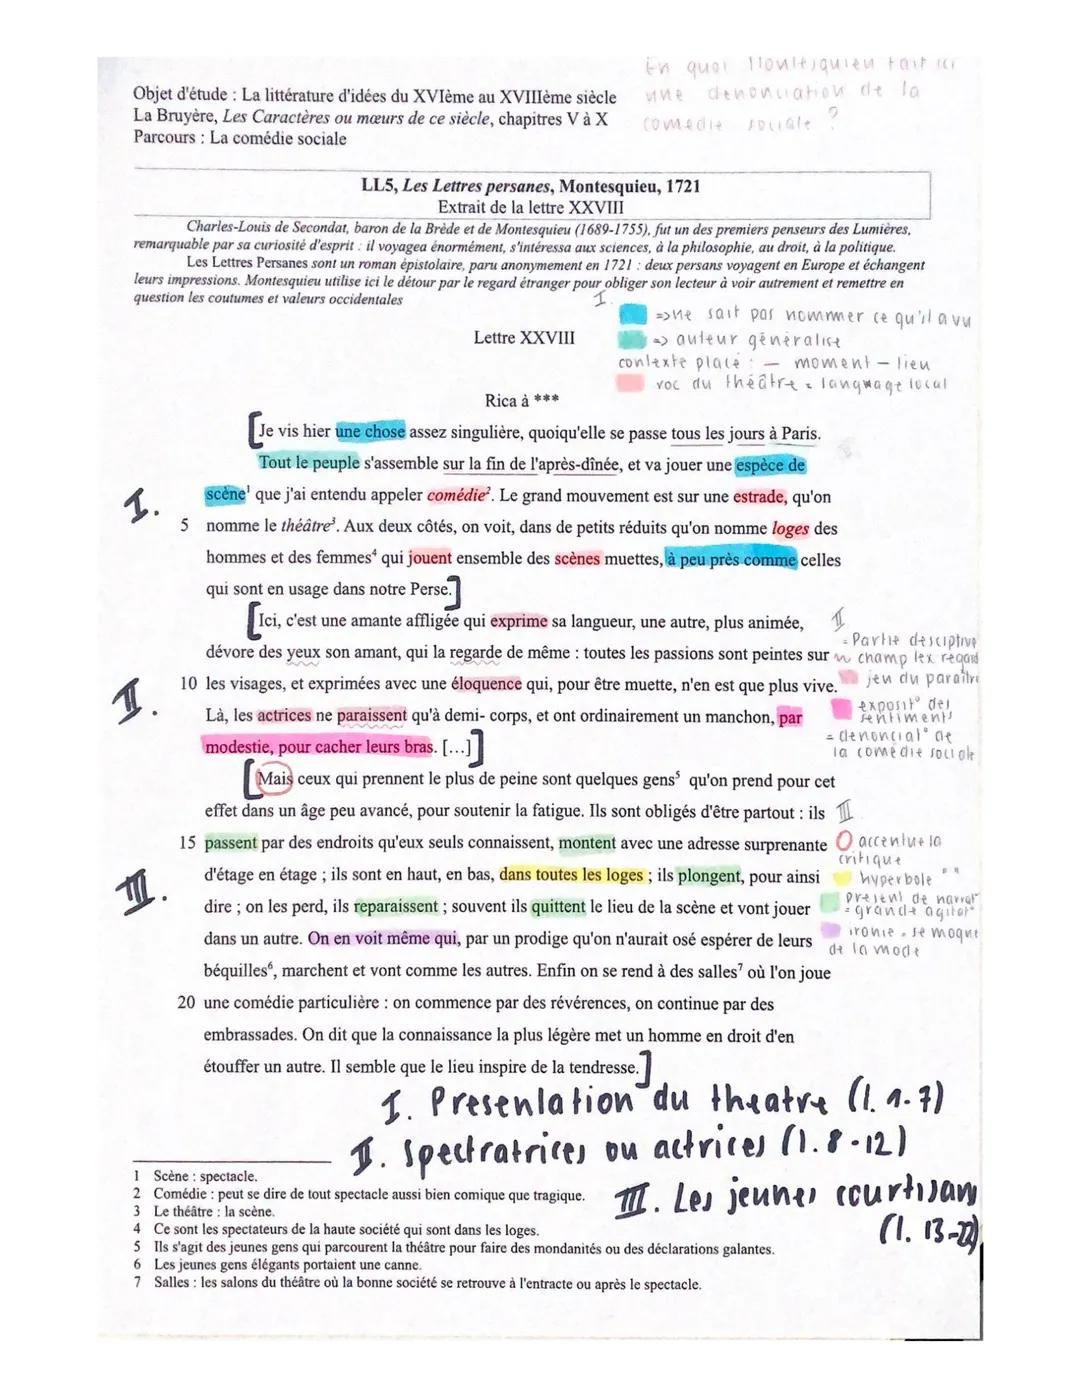 En quoi Montesquieu fait ici
une denonciation de la
comedie sociale ?
Objet d'étude : La littérature d'idées du XVIème au XVIIIème siècle
La Bruyère, Les Caractères ou mœurs de ce siècle, chapitres V à X
Parcours : La comédie sociale
LL5, Les Lettres persanes, Montesquieu, 1721
Extrait de la lettre XXVIII
Charles-Louis de Secondat, baron de la Brède et de Montesquieu (1689-1755), fut un des premiers penseurs des Lumières,
remarquable par sa curiosité d'esprit : il voyagea énormément, s'intéressa aux sciences, à la philosophie, au droit, à la politique.
Les Lettres Persanes sont un roman épistolaire, paru anonymement en 1721 : deux persans voyagent en Europe et échangent
leurs impressions. Montesquieu utilise ici le détour par le regard étranger pour obliger son lecteur à voir autrement et remettre en
question les coutumes et valeurs occidentales
I.
=> ne sait pas nommer ce qu'il a vu
Lettre XXVIII
=> auteur généralise
contexte place : - moment - lieu
voc du théâtre = langwage local
Rica à ***
[Je vis hier une chose assez singulière, quoiqu'elle se passe tous les jours à Paris.
Tout le peuple s'assemble sur la fin de l'après-dînée, et va jouer une espèce de
I.
scène¹ que j'ai entendu appeler comédie². Le grand mouvement est sur une estrade, qu'on
5 nomme le théâtre³. Aux deux côtés, on voit, dans de petits réduits qu'on nomme loges des
hommes et des femmes⁴ qui jouent ensemble des scènes muettes, à peu près comme celles
qui sont en usage dans notre Perse.]
[Ici, c'est une amante affligée qui exprime sa langueur, une autre, plus animée,
II
= Partie desciptive
dévore des yeux son amant, qui la regarde de même : toutes les passions sont peintes sur
champ lex regard
II.
10 les visages, et exprimées avec une éloquence qui, pour être muette, n'en est que plus vive.
jeu du paraître
Là, les actrices ne paraissent qu'à demi- corps, et ont ordinairement un manchon, par
exposit° des
sentiments
= denonciat° de
modestie, pour cacher leurs bras. [...]]
la comedie sociale
[Mais ceux qui prennent le plus de peine sont quelques gens⁵ qu'on prend pour cet
effet dans un âge peu avancé, pour soutenir la fatigue. Ils sont obligés d'être partout : ils
III
15 passent par des endroits qu'eux seuls connaissent, montent avec une adresse surprenante
accentue la
critique
III.
d'étage en étage ; ils sont en haut, en bas, dans toutes les loges ; ils plongent, pour ainsi
hyperbole
dire ; on les perd, ils reparaissent ; souvent ils quittent le lieu de la scène et vont jouer
present de narrat°
= grande agitat°
dans un autre. On en voit même qui, par un prodige qu'on n'aurait osé espérer de leurs
ironie = se moque
de la mode
béquilles⁶, marchent et vont comme les autres. Enfin on se rend à des salles⁷ où l'on joue
20 une comédie particulière : on commence par des révérences, on continue par des
embrassades. On dit que la connaissance la plus légère met un homme en droit d'en
étouffer un autre. Il semble que le lieu inspire de la tendresse.]
I. Presentation du theatre (l. 1-7)
II. Spectratrices ou actrices (l. 8-12)
III. Les jeunes courtisans
(l. 13-22)
1 Scène : spectacle.
2 Comédie : peut se dire de tout spectacle aussi bien comique que tragique.
3 Le théâtre : la scène.
4 Ce sont les spectateurs de la haute société qui sont dans les loges.
5 Ils s'agit des jeunes gens qui parcourent la théâtre pour faire des mondanités ou des déclarations galantes.
6 Les jeunes gens élégants portaient une canne.
7 Salles : les salons du théâtre où la bonne société se retrouve à l'entracte ou après le spectacle.